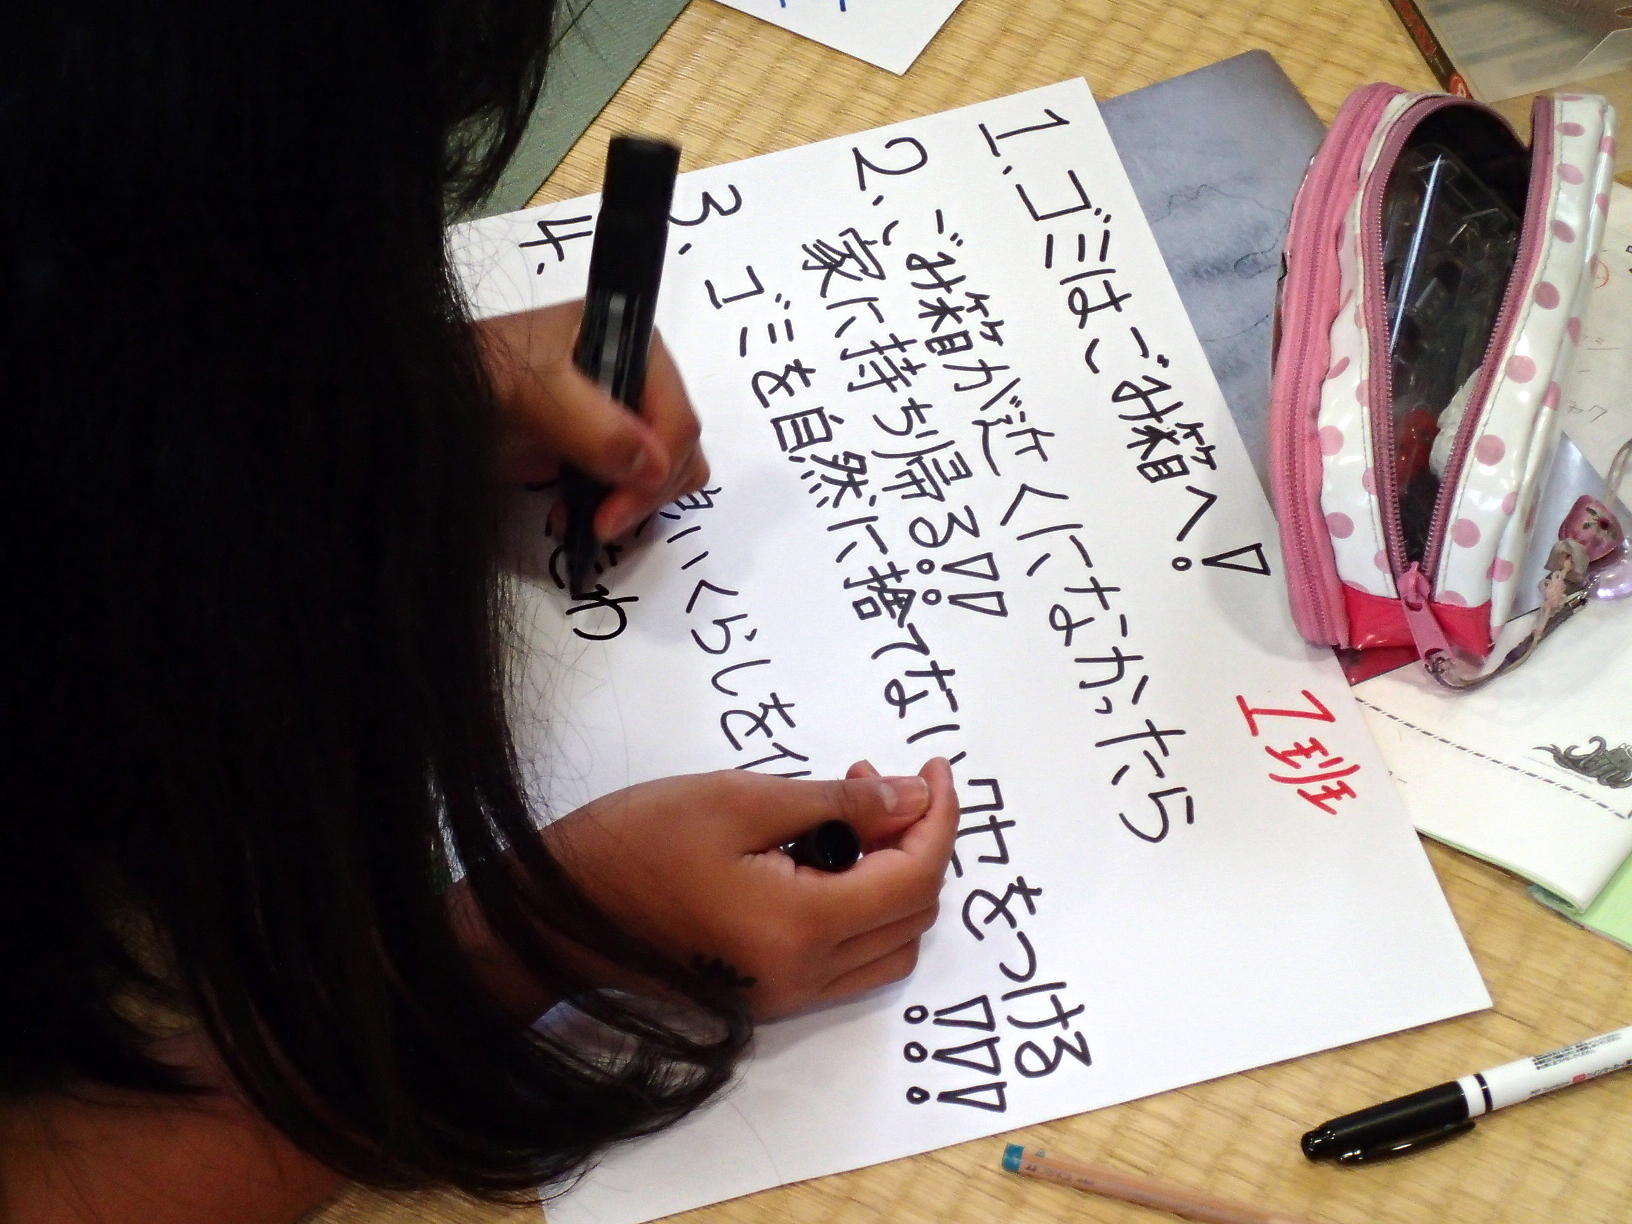 1班
1.ゴミはごみ箱へ!
2.ごみ箱が近くになかったら
家に持ち帰る!!
3.ゴミを自然に捨てないクセをつける
!!!
4. いくらしを